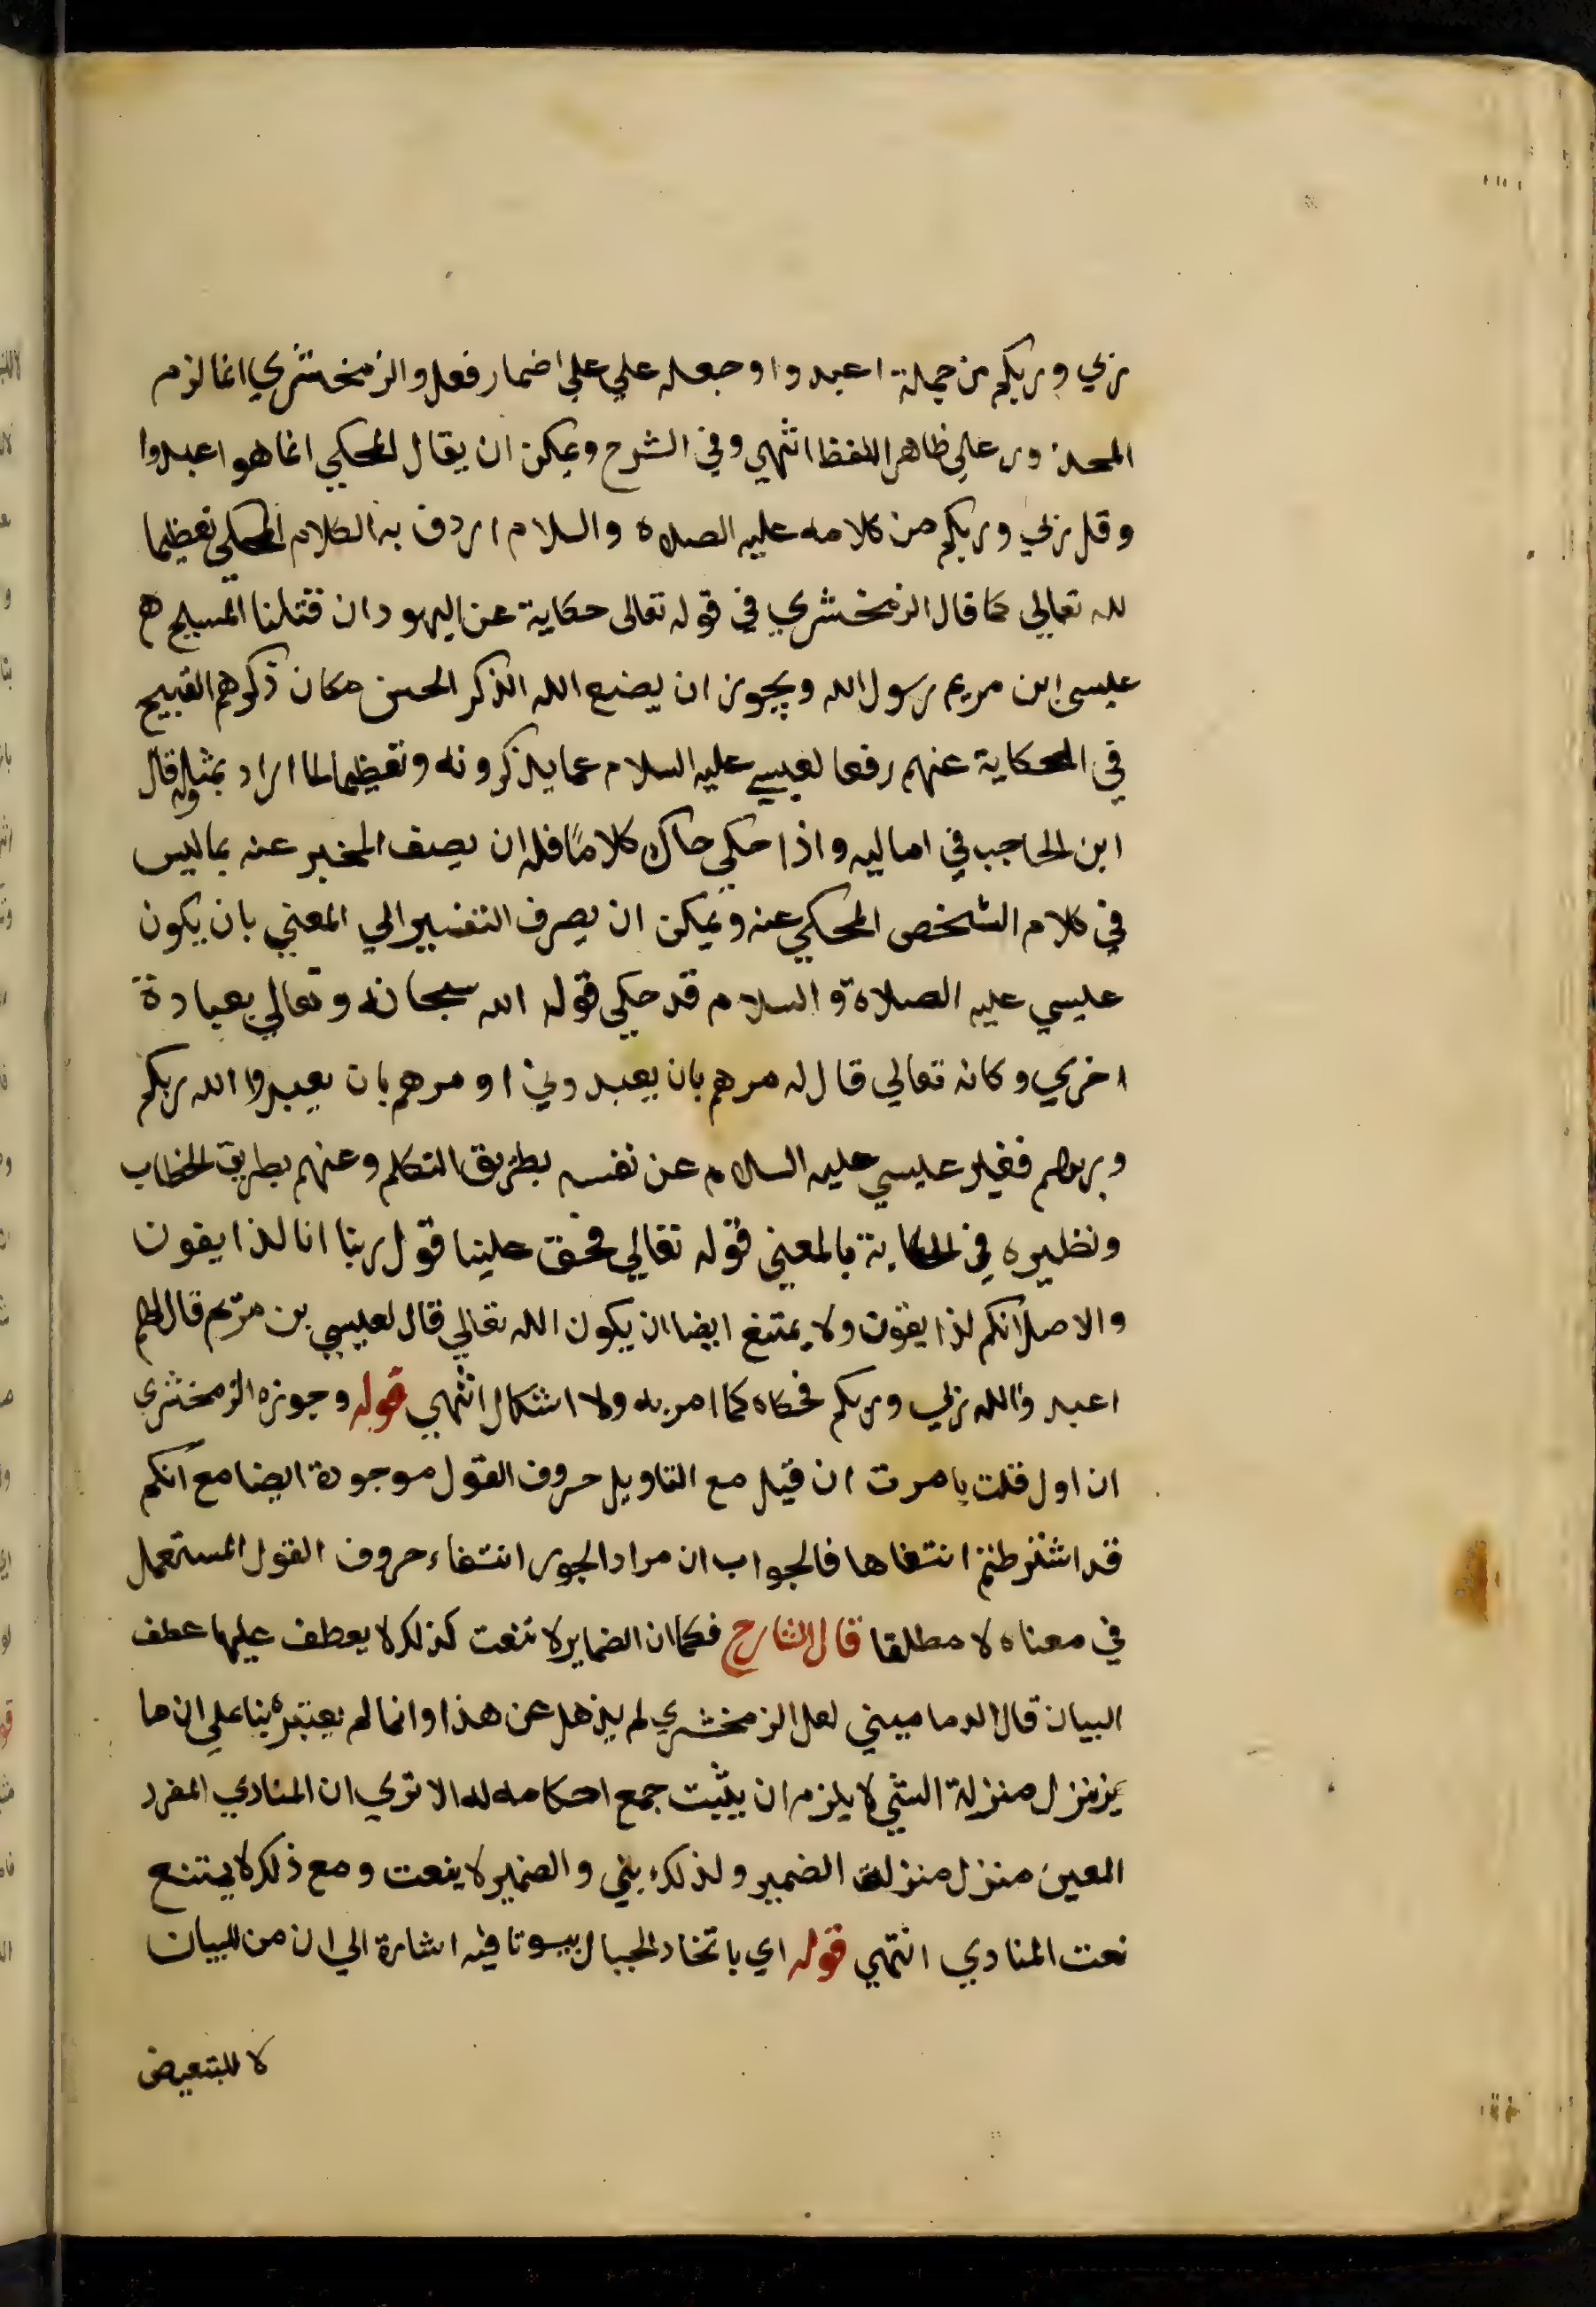 ربي وربكم من جملة اعبدوا وجعله علي علي اضمار فعل والزمخشري انما لزم
المحذور علي ظاهر اللفظ انتهي وفي الشرح ويمكن ان يقال المحكي انما هو اعبدوا
وقل ربي وربكم من كلامه عليه الصلاة والسلام اردف به الكلام المحكي تعظيما
لله تعالي كما قال الزمخشري في قوله تعالى حكاية عن اليهود ان قتلنا المسيح
عيسى ابن مريم رسول الله ويجوز ان يضع الله الذكر الحسن مكان ذكرهم القبيح
في الحكاية عنهم رفعا لعيسي عليه السلام عما يذكرونه وتعظيما لما اراد بمثله قال
ابن الحاجب في اماليه واذا حكي حاك كلاما فله ان يصف المخبر عنه بما ليس
في كلام الشخص المحكي عنه ويمكن ان يصرف التفسير الي المعني بان يكون
عيسي عليه الصلاة والسلام قد حكى قول الله سبحانه وتعالي بعبادة
اخري وكانه تعالي قال له مرهم بان يعبدوني او مرهم بان يعبدوا الله ربكم
وربهم فغير عيسي عليه السلام عن نفسه بطريق التكلم وعنهم بطريق الخطاب
ونظيره في الحكاية بالمعني قوله تعالي فحق علينا قول ربنا انا لذايقون
والاصل انكم لذايقون ولا يمتنع ايضا ان يكون الله تعالي قال لعيسي بن مريم قال لهم
اعبدوا الله ربي وربكم فحكاه كما امر به ولا اشكال انتهي قوله وجوزه الزمخشري
ان اول قلت بامرت ان قيل مع التاويل حروف القول موجودة ايضا مع انكم
قد اشترطتم انتفاها فالجواب ان مراد الجمهور انتفاء حروف القول المستعمل
في معناه لا مطلقا قال الشارح فكما ان الضماير لا تنعت كذلك لا يعطف عليها عطف
البيان قال الدماميني لعل الزمخشري لم يذهل عن هذا وانما لم يعتبره بنا علي ان ما
ينزل منزلة الشي لا يلزم ان يثبت جمع احكامه له الا تري ان المنادي المفرد
المعين منزل منزلة الضمير ولذلك بني والضمير لا ينعت ومع ذلك لا يمتنع
نعت المنادي انتهي قوله اي باتخاذ الجبال بيوتا فيه اشارة الي ان من للبيان
لا للتبعيض